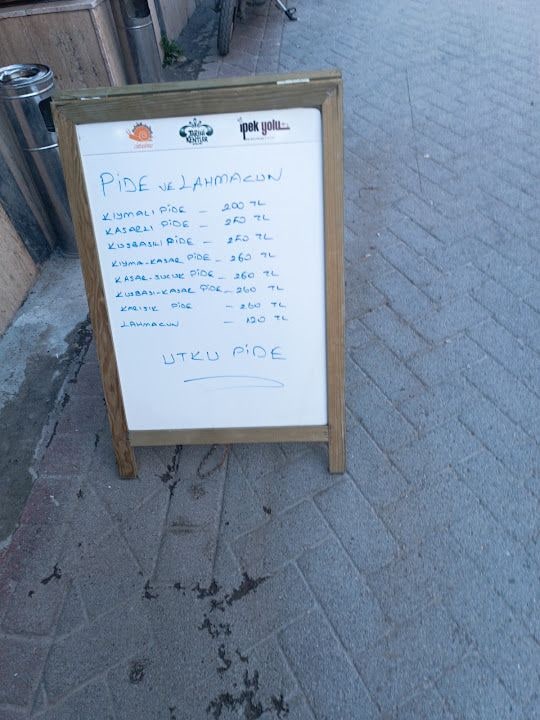 TARİHİ KENTLER
ipek yolu
PİDE VE LAHMACUN
KIYMALI PİDE - 200 TL
KASARLI PİDE - 250 TL
KUSBASILI PİDE - 250 TL
KIYMA-KASAR PİDE - 260 TL
KASAR-SUCUK PİDE - 260 TL
KUSBASI-KASAR PİDE - 260 TL
KARISIK PİDE - 260 TL
LAHMACUN - 120 TL
UTKU PİDE